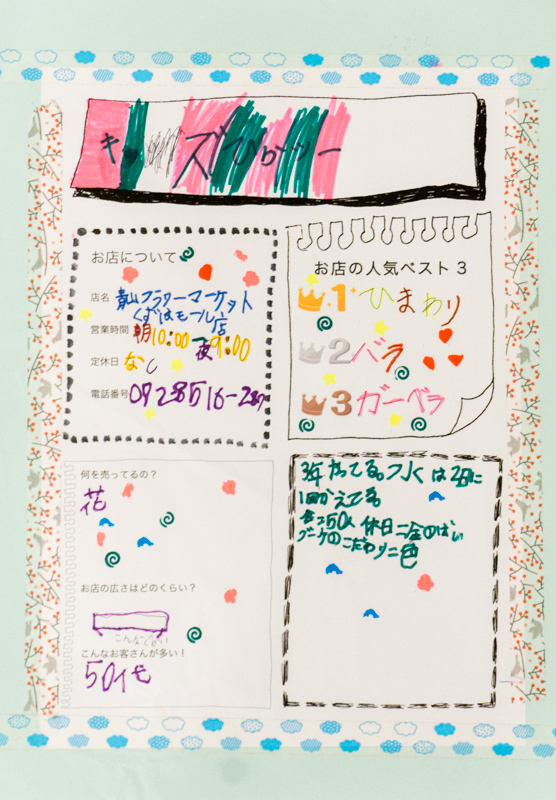 キッズひらりー
お店について
店名 青山フラワーマーケット
くずはモール店
営業時間 朝10:00→夜9:00
定休日 なし
電話番号
お店の人気ベスト3
1 ひまわり
2 バラ
3 ガーベラ
何を売ってるの?
花
お店の広さはどのくらい?
こんなお客さんが多い!
50代
3年やってる。水は2日に
1回かえてる。
50人 休日二金のばい
ブーケのこだわり二色